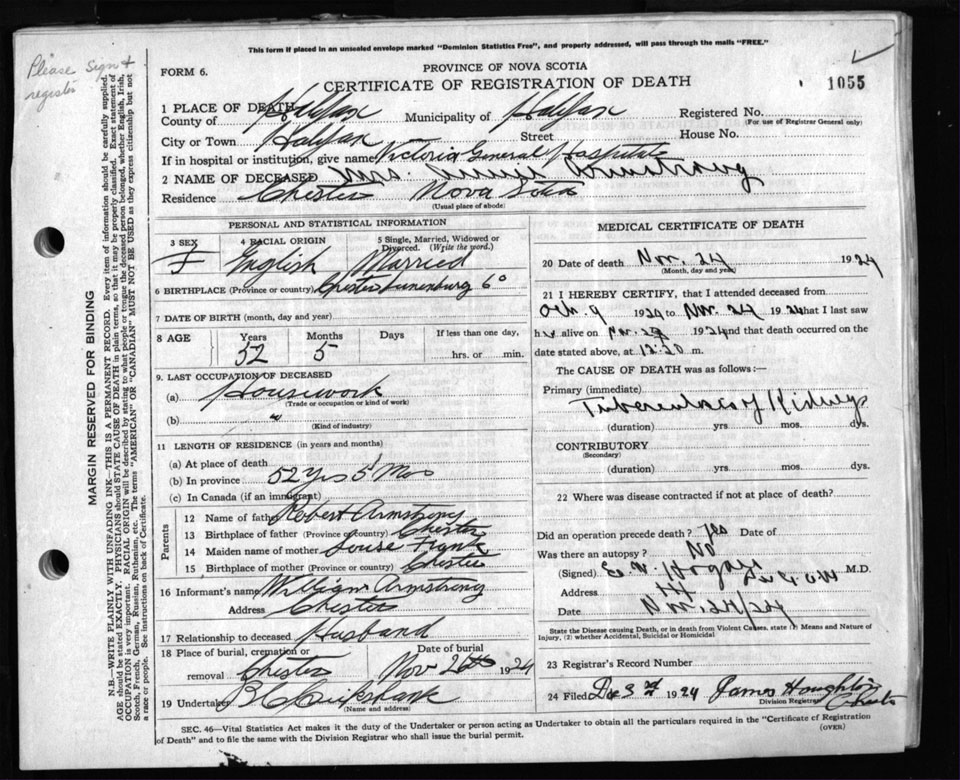 This form if placed in an unsealed envelope marked "Dominion Statistics Free", and properly addressed, will pass through the mails "FREE."
Please sign &
register
FORM 6.
PROVINCE OF NOVA SCOTIA
CERTIFICATE OF REGISTRATION OF DEATH
1055
1 PLACE OF DEATH
County of Halifax Municipality of Halifax Registered No.
(For use of Registrar General only)
City or Town Halifax — Street House No.
If in hospital or institution, give name Victoria General Hospital
2 NAME OF DECEASED Mrs. Armstrong
Residence Chester Nova Scotia
(Usual place of abode)
PERSONAL AND STATISTICAL INFORMATION
3 SEX 4 RACIAL ORIGIN 5 Single, Married, Widowed or Divorced. (Write the word.)
F English Married
6 BIRTHPLACE (Province or country) Chester Lunenburg Co
7 DATE OF BIRTH (month, day and year)
8 AGE Years Months Days If less than one day,
52 5 hrs. or min.
9. LAST OCCUPATION OF DECEASED
(a) Housework
(Trade or occupation or kind of work)
(b) "
(Kind of industry)
11 LENGTH OF RESIDENCE (in years and months)
(a) At place of death
(b) In province 52 Yrs 5 Mos
(c) In Canada (if an immigrant)
Parents
12 Name of father Robert Armstrong
13 Birthplace of father (Province or country) Chester
14 Maiden name of mother Louise Frank
15 Birthplace of mother (Province or country) Chester
16 Informant's name William Armstrong
Address Chester
17 Relationship to deceased Husband
18 Place of burial, cremation or removal Chester Date of burial Nov 26th 1924
19 Undertaker B C Cruikshank
(Name and address)
MEDICAL CERTIFICATE OF DEATH
20 Date of death Nov. 24 1924
(Month, day and year)
21 I HEREBY CERTIFY, that I attended deceased from
Oct. 9 1924 to Nov. 24 1924 that I last saw
her alive on Nov. 24 1924 and that death occurred on
date stated above, at 12:20 m.
The CAUSE OF DEATH was as follows:—
Primary (immediate)
Tuberculosis of Kidneys
(duration) yrs mos. dys.
CONTRIBUTORY
(Secondary)
(duration) yrs. mos. dys.
22 Where was disease contracted if not at place of death?
Did an operation precede death? Yes Date of
Was there an autopsy? No
(Signed) M.D.
Address
Date Nov. 24/24
State the Disease causing Death, or in death from Violent Causes, state (1) Means and Nature of Injury, (2) whether Accidental, Suicidal or Homicidal
23 Registrar's Record Number
24 Filed Dec 3rd 1924 James Houghton
Division Registrar Chester
SEC. 46—Vital Statistics Act makes it the duty of the Undertaker or person acting as Undertaker to obtain all the particulars required in the "Certificate of Registration
of Death" and to file the same with the Division Registrar who shall issue the burial permit.
(OVER)
MARGIN RESERVED FOR BINDING
N.B.—WRITE PLAINLY WITH UNFADING INK—THIS IS A PERMANENT RECORD. Every item of information should be carefully supplied.
AGE should be stated EXACTLY. PHYSICIANS should STATE CAUSE OF DEATH in plain terms, so that it may be properly classified. Exact statement of
OCCUPATION is very important. RACIAL ORIGIN will be described by stating to what people or tongue the deceased person belonged, whether English, Irish,
Scotch, French, German, Russian, Ruthenian, etc. The terms "AMERICAN" or "CANADIAN" MUST NOT BE USED as they express citizenship but not
a race or people. See instructions on back of Certificate.